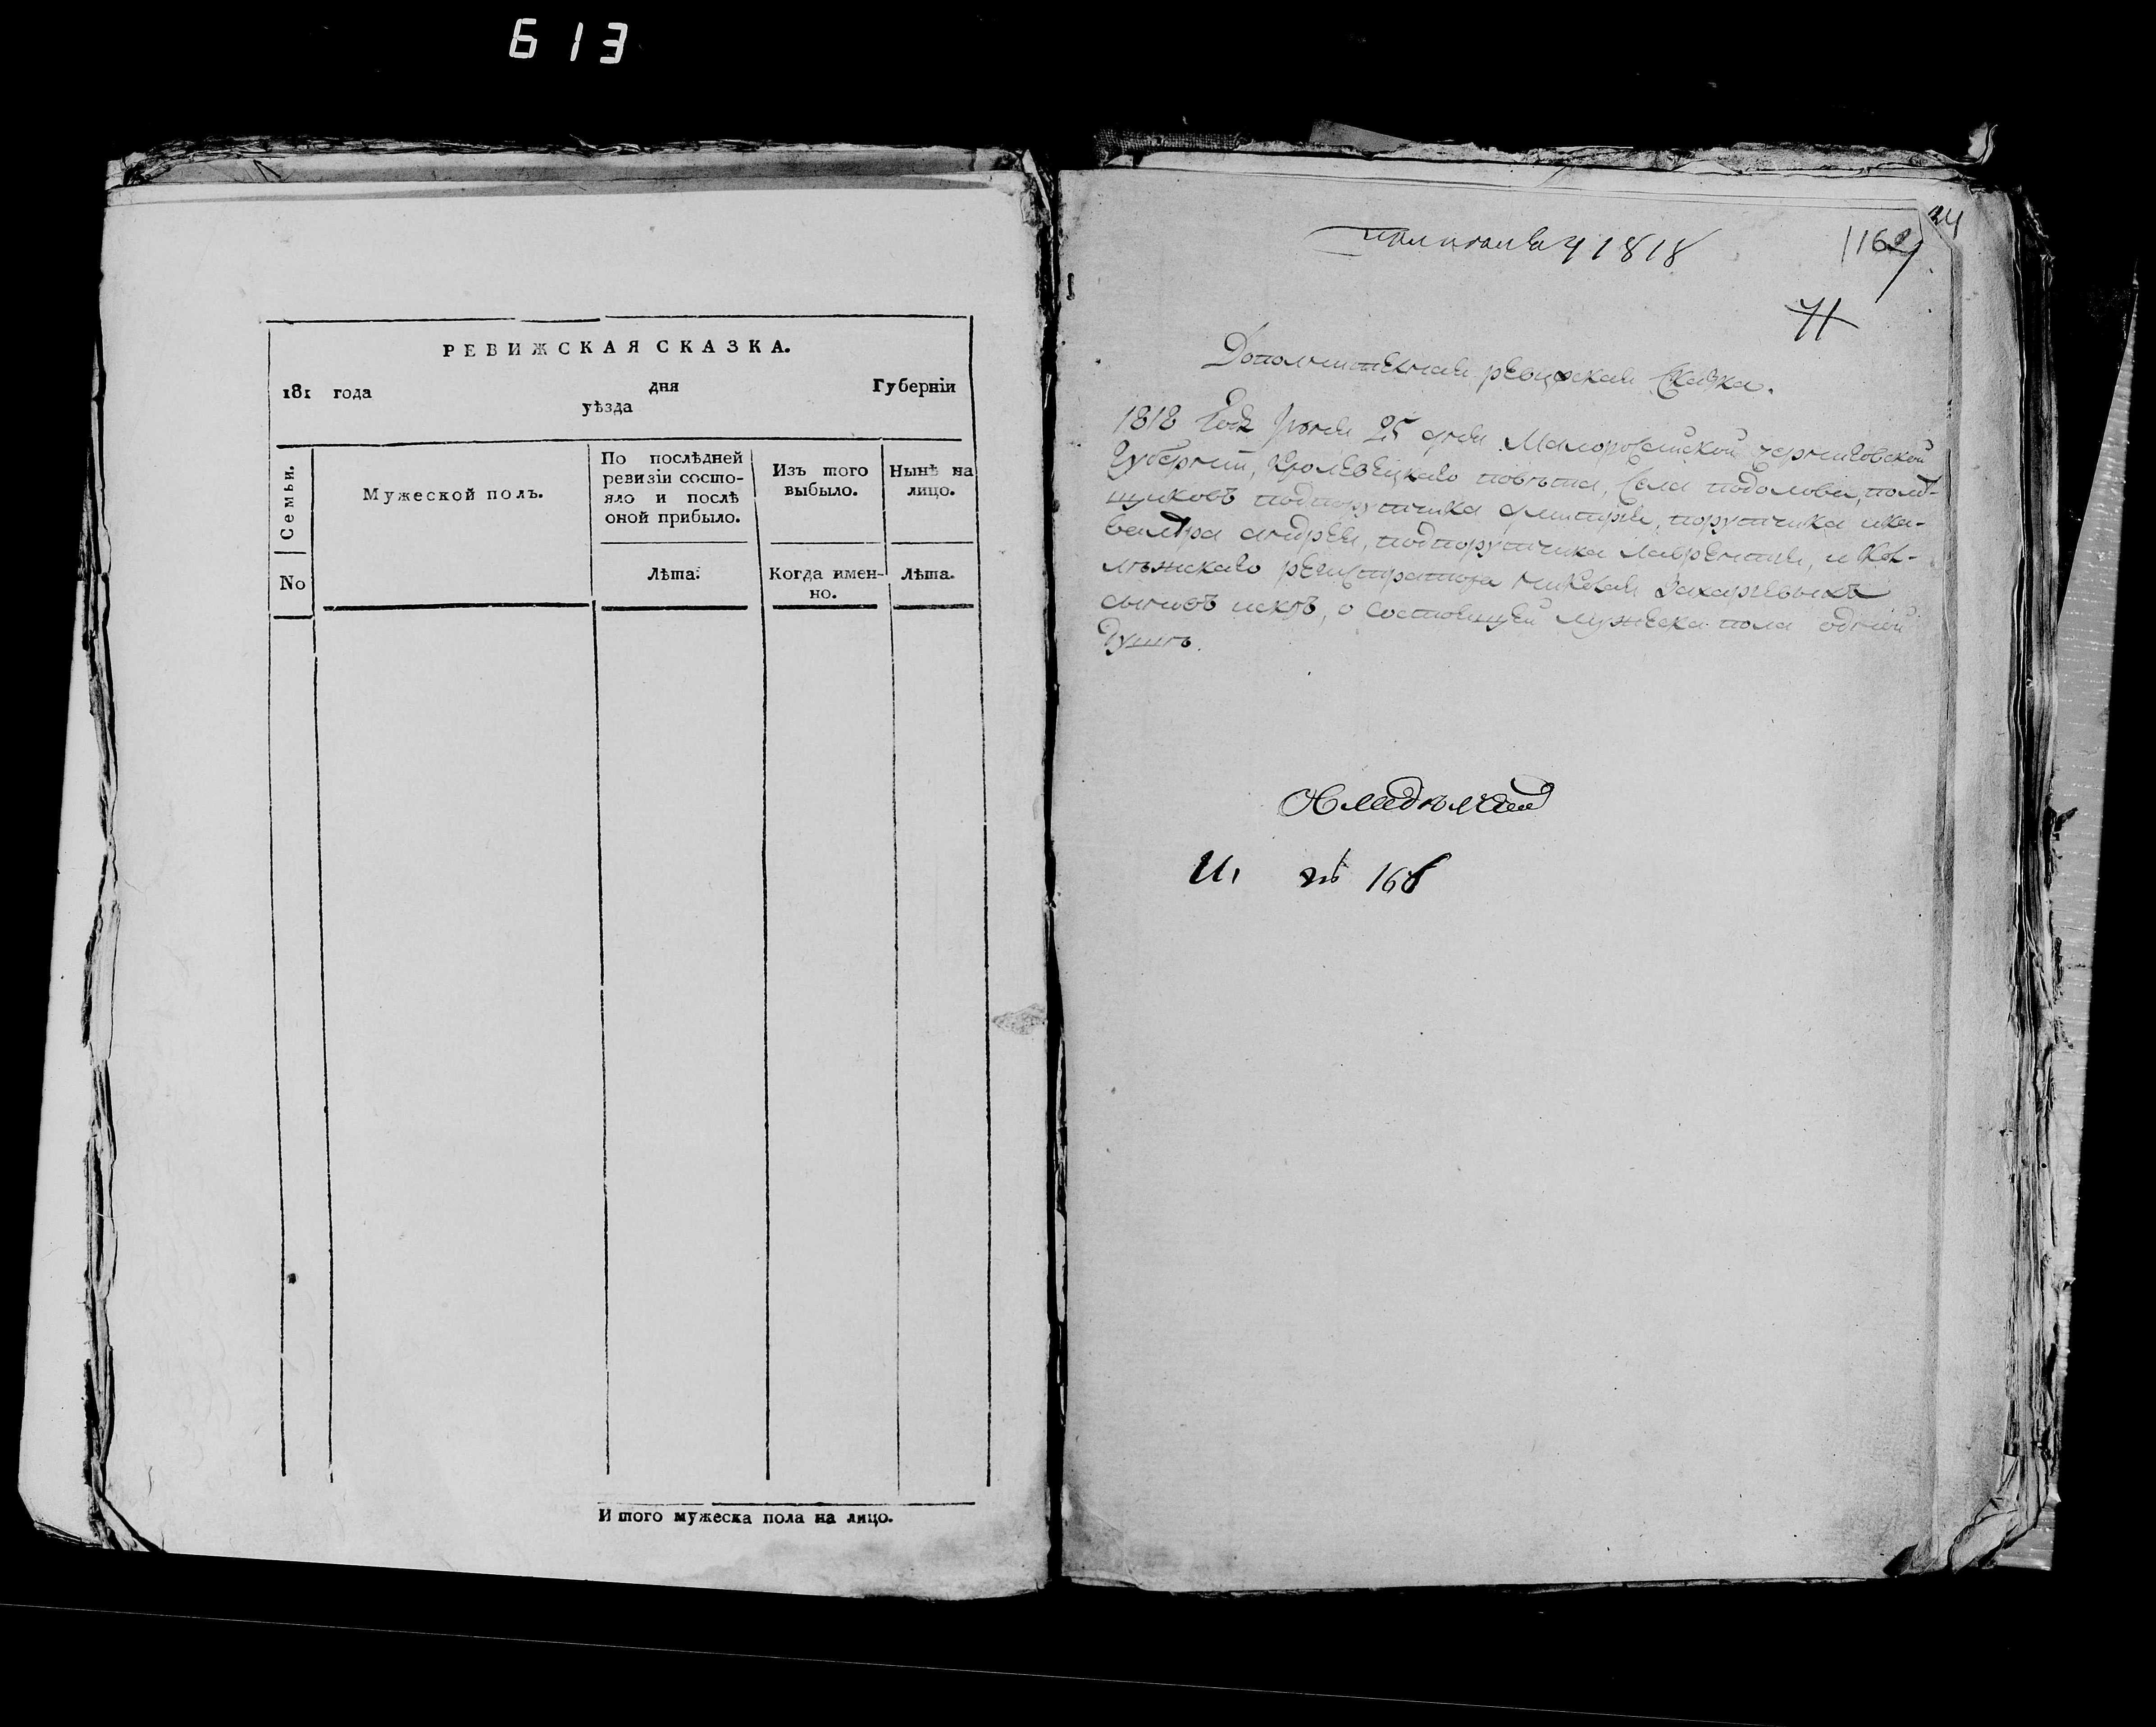 613
РЕВИЖСКАЯ СКАЗКА.
181 года дня Губерніи
уѣзда
Семьи.
No
Мужеской полъ.
По послѣдней
ревизіи состо-
яло и послѣ
оной прибыло.
Лѣта.
Изъ того
выбыло.
Когда имен-
но.
Нынѣ на
лицо.
Лѣта.
Итого мужеска пола на лицо.
34
1818
1162
71
Дополнительная ревижская сказка.
1818 Года Іюня 25 дня Малоросийской черниговской
Губерний, Кролевецкаго повѣта, села подолова, помѣ-
щиковъ подпорутчика дмитрія, порутчика и ка-
валѣра андрея, подпорутчика лаврентия, и Кол-
лѣжскаго регистратора николая Захарьевыхъ
сыновъ, о состоящей мужеска пола одной
Душѣ.
И. 168